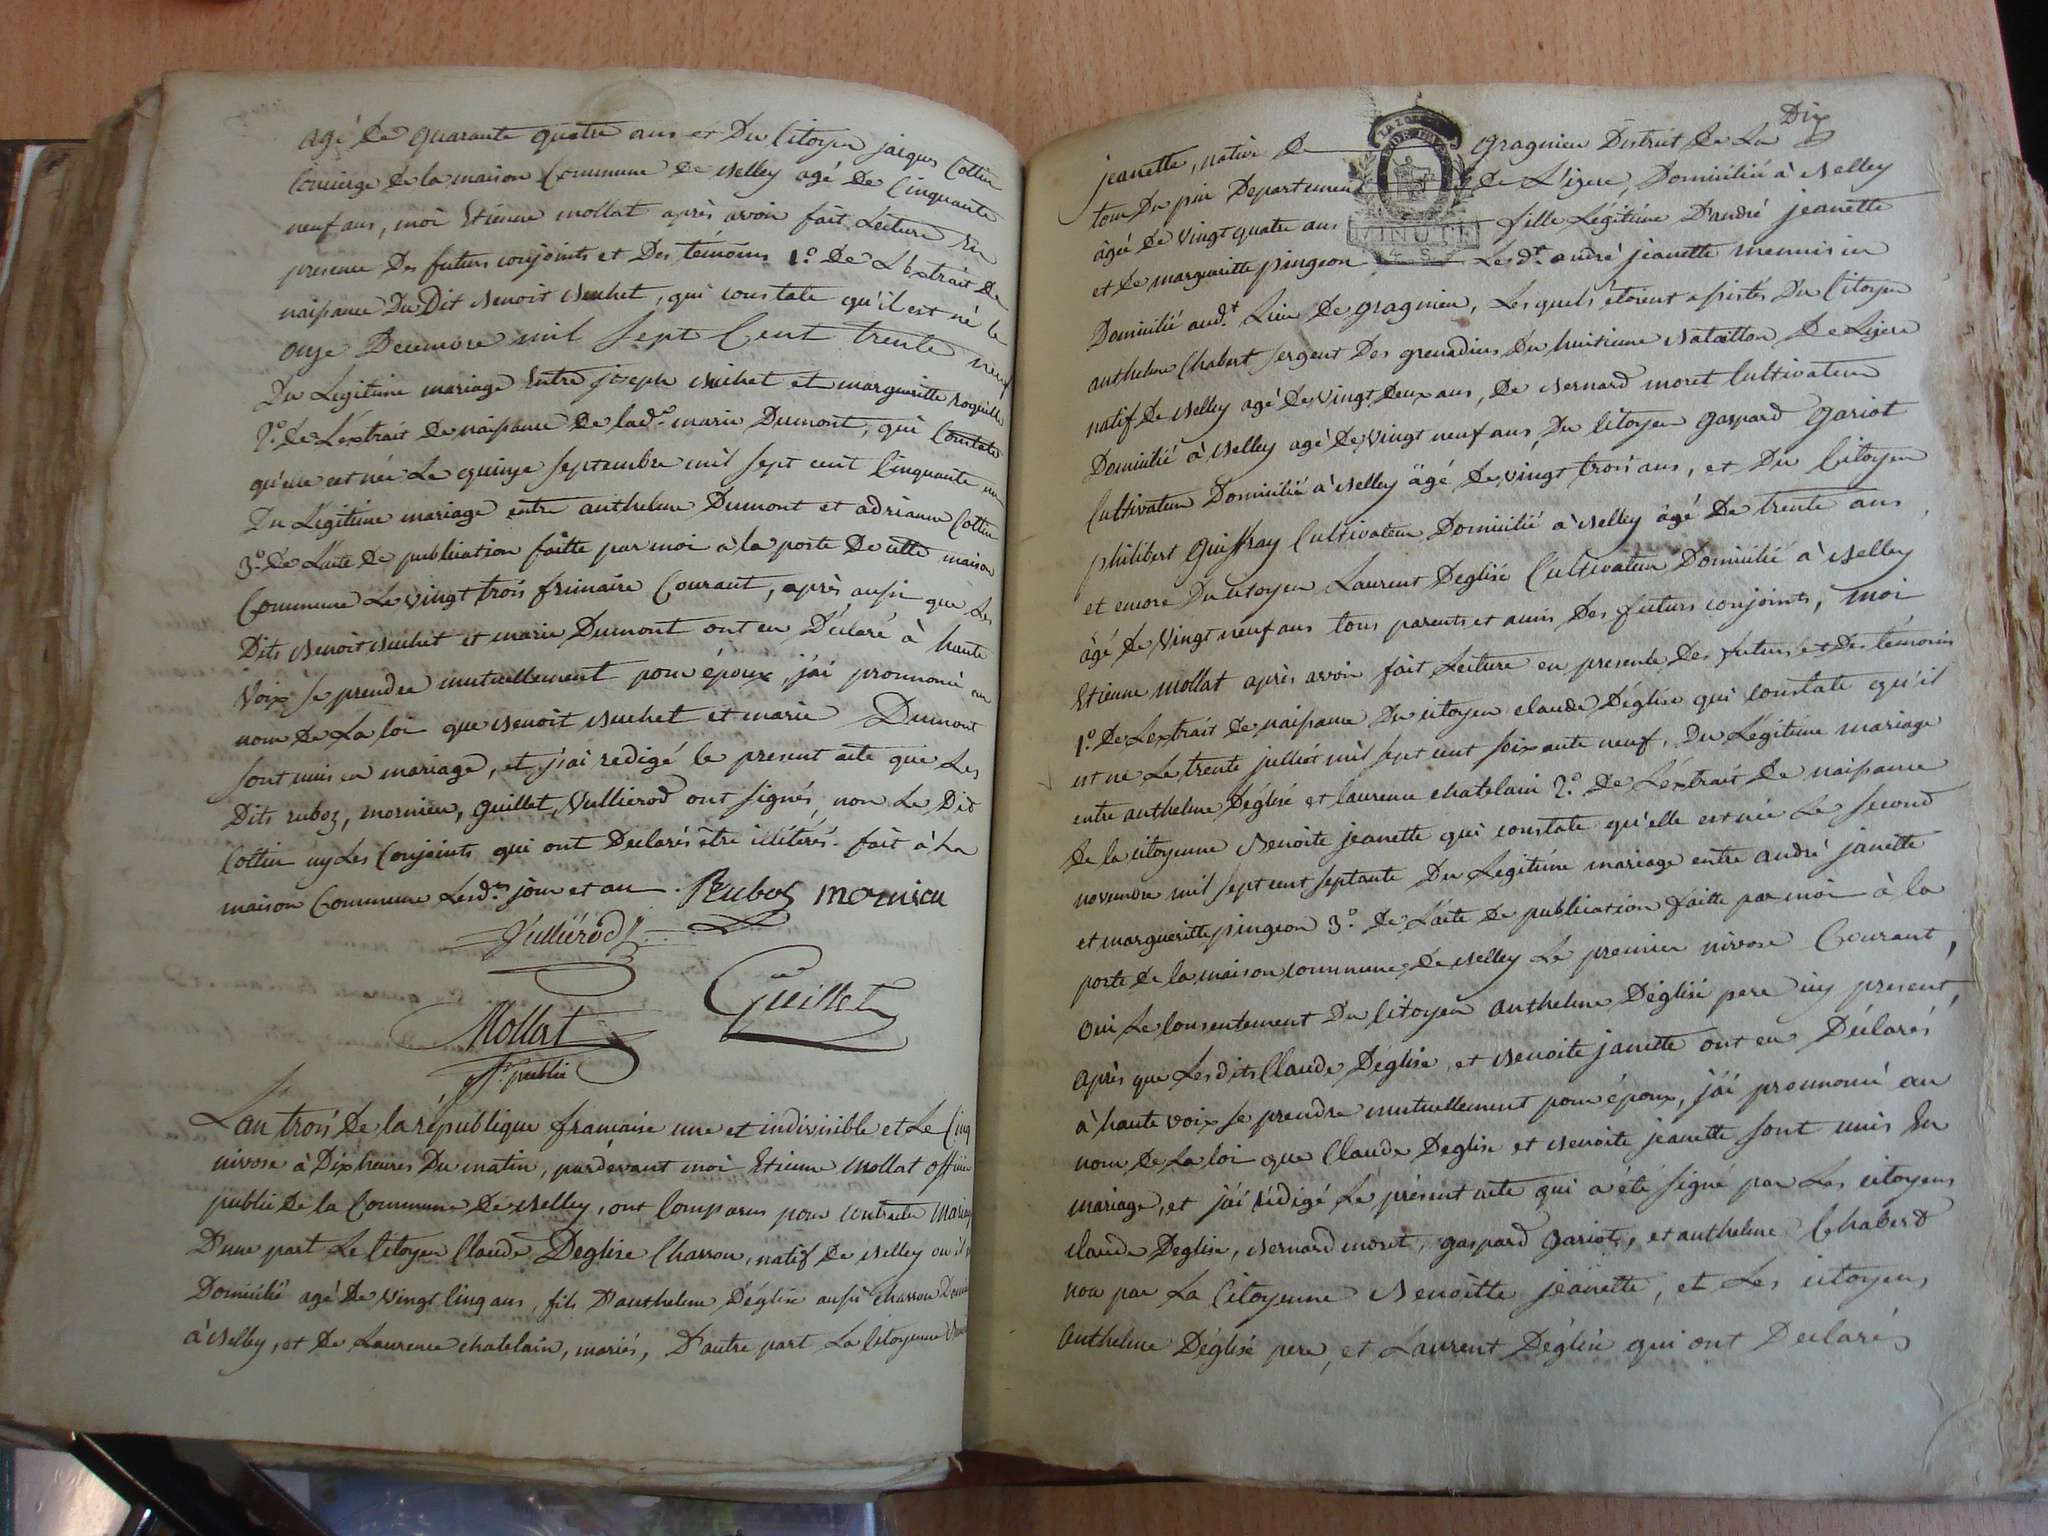 agé De quarante quatre ans et Du Citoyen jacques Cottin
Concierge De la maison Commune De Belley agé De Cinquante
neuf ans, moi Etienne mollat après avoir fait Lecture En
presence Des futurs conjoints et Des témoins 1.° De L'Extrait De
naissance Du Dit Benoit Buchet, qui constate qu'il est né le
onze Decembre mil Sept Cent trente neuf
Du Legitime mariage Entre joseph Buchet et margueritte
2.° De L'extrait De naissance De lad.e marie Dumont, qui Constate
qu'elle est née Le quinze septembre mil sept cent Cinquante un
Du Légitime mariage entre anthelme Dumont et adrianne Cottin
3.° De L'acte De publication faitte par moi à la porte De cette maison
Commune Le vingt trois frimaire Courant, après aussi que Les
Dits Benoit Buchet et marie Dumont ont eu Déclaré à haute
Voix se prendre mutuellement pour époux, j'ai prononcé au
nom De La loi que Benoit Buchet et marie Dumont
sont unis en mariage, et j'ai redigé le present acte que Les
Dits ruboz, mornieu, guillet, Vullierod ont signés, non Le Dit
Cottin ny Les Conjoints qui ont Declarés être illiterés. fait à La
maison Commune Lesd.ts jour et an Ruboz mornieu
Vulliérod
Guillet
Mollat
ff.r public
L'an trois De la république francaise une et indivisible et Le Cinq
nivose à Dix heures Du matin, pardevant moi Etienne Mollat officier
public De la Commune De Belley, ont Comparus pour contracter Mariage
D'une part Le Citoyen Claude Deglise Charron, natif De Belley ou il
Domicilié agé De vingt Cinq ans, fils D'anthelme Déglise aussi charron
à Belley, et De Laurence chatelain, mariés, D'autre part La Citoyenne
Dix
jeanette, native De gragnieu District De La
tour Du pin Departement De L'izere, Domiciliée à Belley
âgée De vingt quatre ans fille Légitime D'andré jeanette
MINUTE
et De margueritte pingeon Led.t andré jeanette menuisier
Domicilié aud.t Lieu De gragnieu, Lesquels étoient assistés Du Citoyen
anthelme Chabert sergent Des grenadiers Du huitieme Bataillon De Lizere
natif De Belley agé De vingt Deux ans, De Bernard moret Cultivateur
Domicilié à Belley agé De vingt neuf ans, Du Citoyen gaspard gariot
Cultivateur Domicilié à Belley âgé De vingt trois ans, et Du Citoyen
philibert Cultivateur Domicilié à Belley âgé De trente ans
et encore Du Citoyen Laurent Deglise Cultivateur Domicilié à Belley
âgé De vingt neuf ans tous parents et amis Des futurs conjoints, moi
Etienne Mollat après avoir fait Lecture en presence Des futurs et Des témoins
1.° De L'extrait De naissance Du citoyen claude Déglise qui constate qu'il
est né Le trente juillet mil sept cent soixante neuf, Du Légitime mariage
entre anthelme Déglise et laurence chatelain 2.° De L'extrait De naissance
De la citoyenne Benoite jeanette qui constate qu'elle est née Le second
novembre mil sept cent septante Du Legitime mariage entre andré janette
et margueritte pingeon 3.° De L'acte De publication faitte par moi à la
porte De la maison commune De Belley Le premier nivose Courant,
oui Le Consentement Du Citoyen Anthelme Déglise pere icy present,
après que Les dits Claude Déglise, et Benoite janette ont eu Déclarés
à haute voix se prendre mutuellement pour époux, j'ai prononcé au
nom De La loi que Claude Deglise et Benoite jeanette sont unis En
mariage, et j'ai rédigé Le présent acte qui a été signé par Les citoyens
claude Deglise, Bernard moret, gaspard gariot, et anthelme Chaberd
non par La Citoyenne Benoitte jeanette, et Les citoyens
anthelme Déglise pere, et Laurent Déglise qui ont Declarés